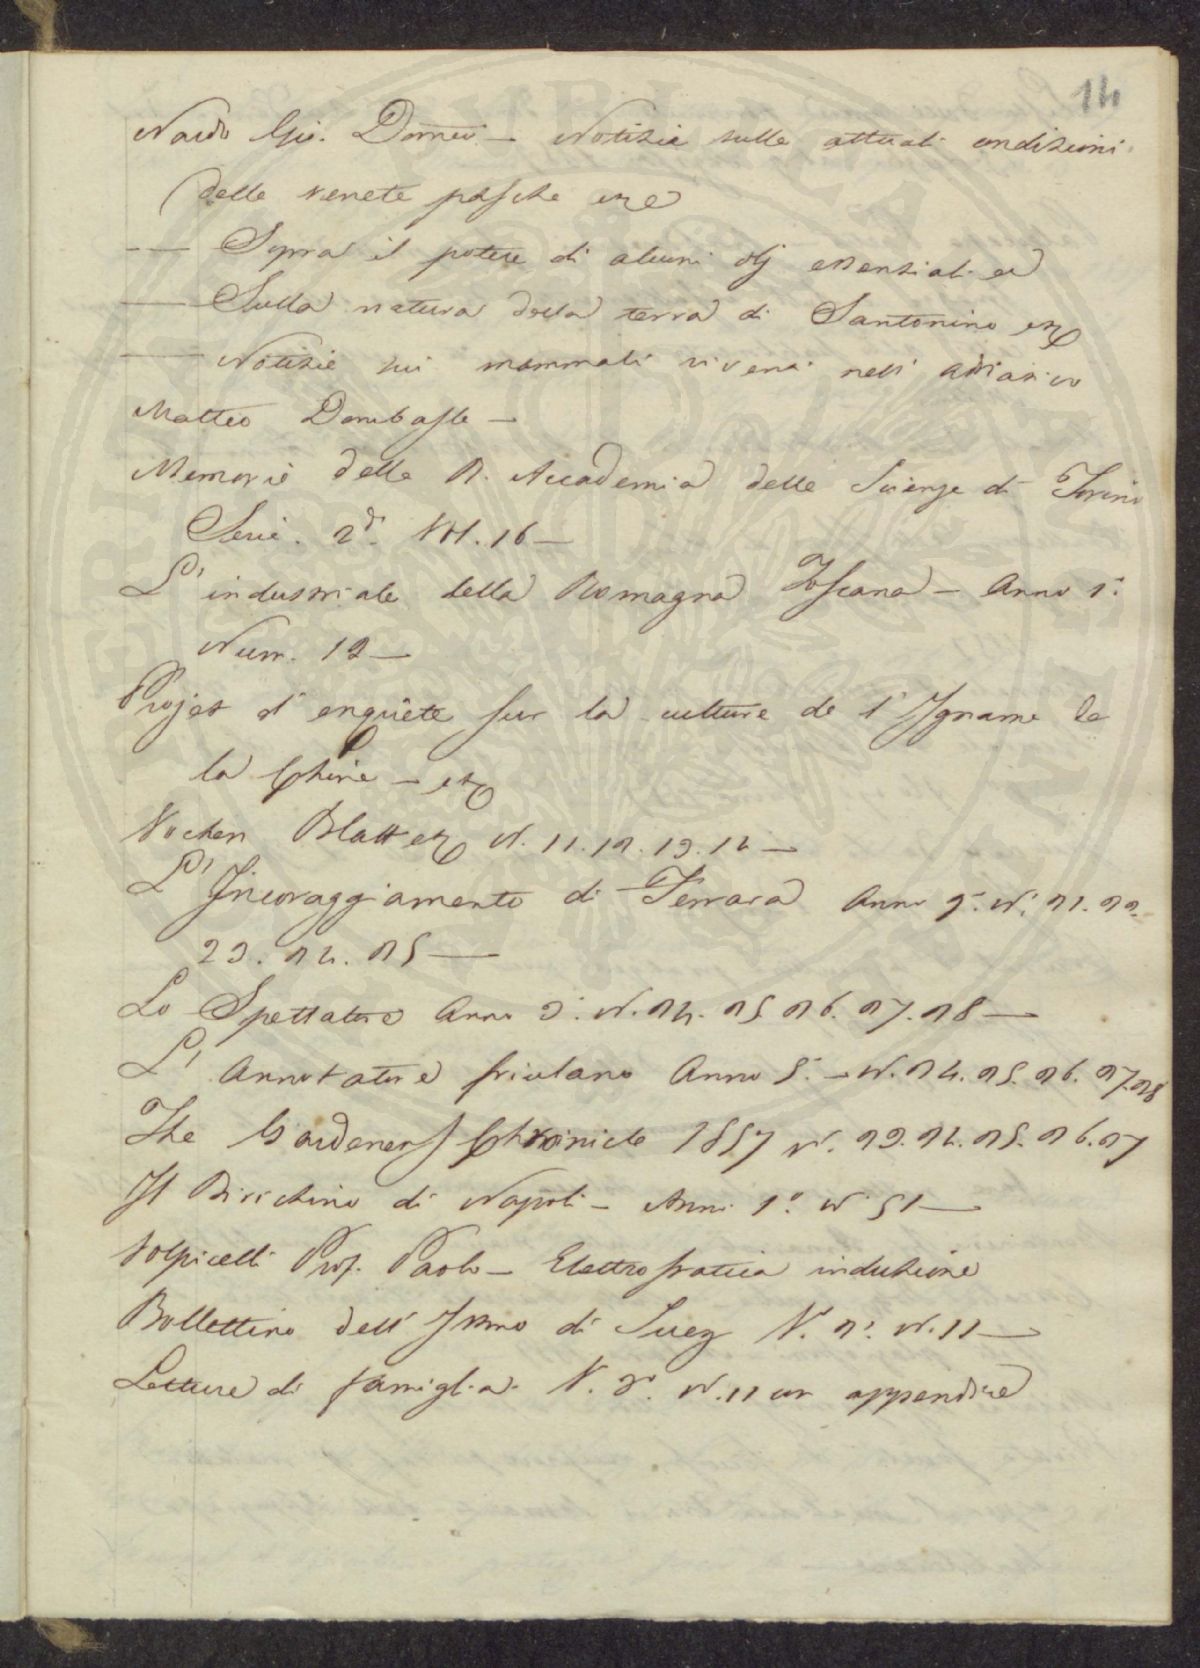 14
Nardo Gio. Domco. — Notizie sulle attuali condizioni
delle venete pesche etc
— Sopra il potere di alcuni olj essenziali ec
— Sulla natura della terra di Santorino etc
— Notizie sui mammali viventi nell' adriatico
Matteo Dombasle —
Memorie della R. Accademia delle Scienze di Torino
Serie. 2da. Vol. 16 —
L'industriale della Romagna Toscana — Anno 1.°
Num. 12 —
Projet d'enquête sur la culture de l'Igname de
la Chine — etc
Wochen Blatt etc N. 11. 12. 13. 14 —
L'Incoraggiamento di Ferrara Anno 9.° N.° 21. 22.
23. 24. 25 —
Lo Spettatore Anno 3.° N. 24. 25. 26. 27. 28 —
L'Annotatore friulano Anno 5.° — N. 24. 25. 26. 27. 28
The Gardeners Chronicle 1857 N. 23. 24. 25. 26. 27
Il Birichino di Napoli — Anno 1.° N. 51 —
Volpicelli Prof. Paolo — Elettrostatica induzione
Bollettino dell'Istmo di Suez V. 2.° N. 11 —
Letture di famiglia. V. 3.° N. 11 con appendice